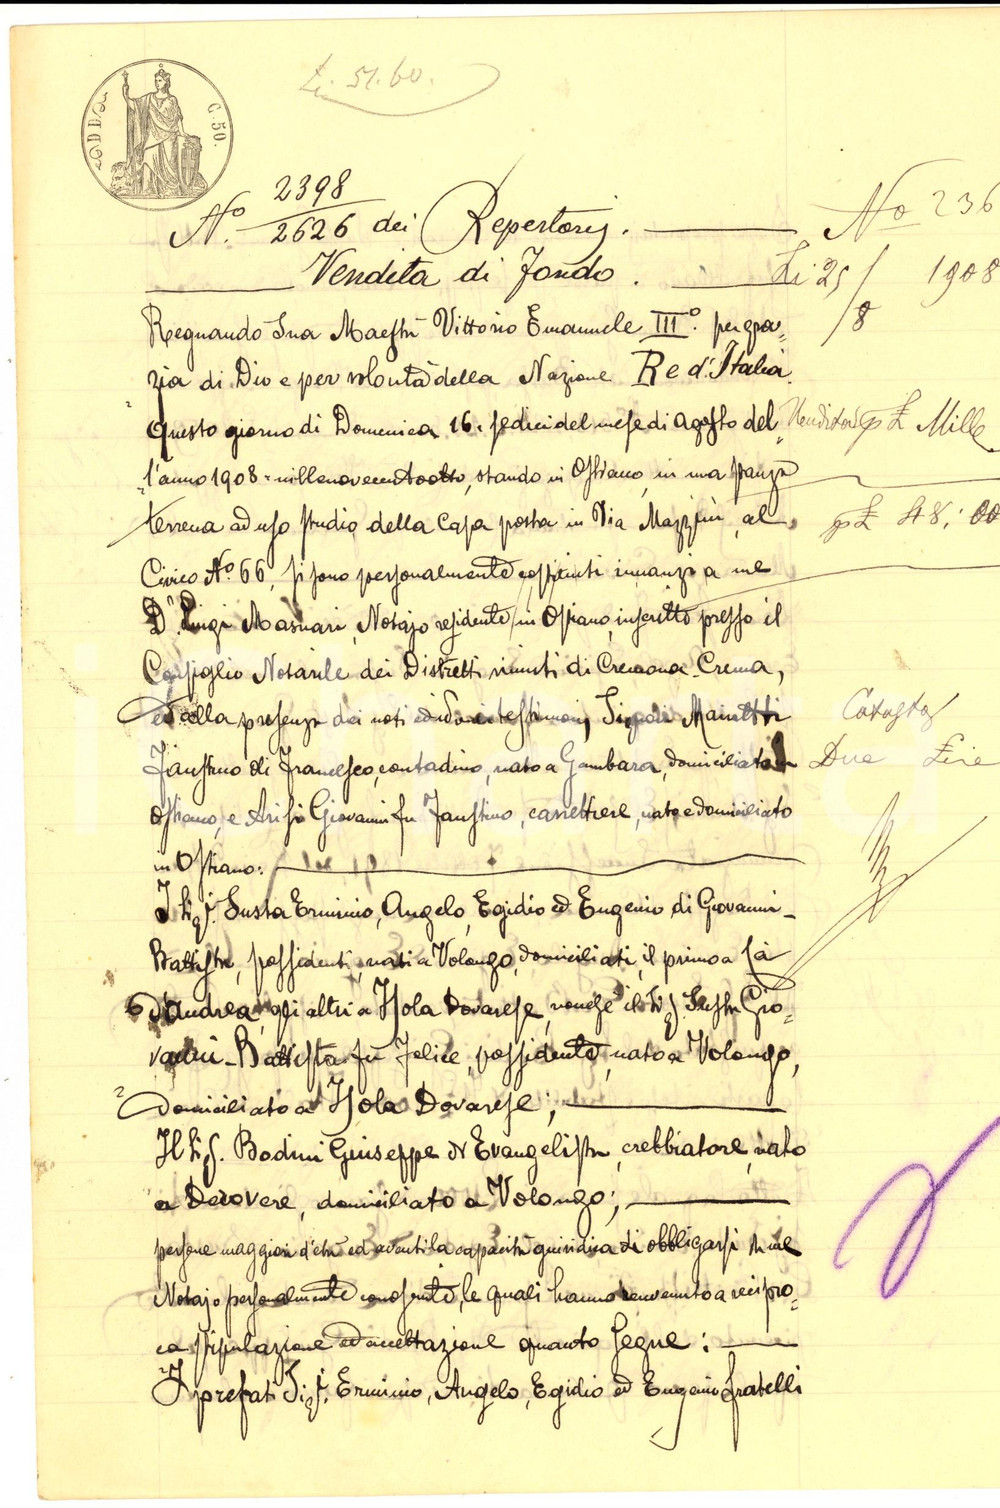 L. 51.60.
C. 50.
N.° 2398/2626 dei Repertorj.
N° 236
Vendita di Fondo.
Li 25/8 1908
Regnando Sua Maestà Vittorio Emanuele III°. per gra=
zia di Dio e per volontà della Nazione Re d'Italia.
Questo giorno di Domenica 16. sedici del mese di Agosto del
Venditori p £ Mille
l'anno 1908 = millenovecentootto, stando in Ostiano, in una stanza
terrena ad uso studio della Casa posta in Via Mazzini, al
p £ 48,00
Civico N.° 66, si sono personalmente costituiti innanzi a me
D.r Luigi Masnari, Notajo residente in Ostiano, inscritto presso il
Consiglio Notarile dei Distretti riuniti di Cremona-Crema,
ed alla presenza dei noti ed idonei testimonj Signori Mainetti
Catasto
Faustino di Francesco, contadino, nato a Gambara, domiciliato in
Due Lire
Ostiano, e Arisi Giovanni fu Faustino, carrettiere, nato e domiciliato
in Ostiano:
I Sig.i Susta Erminio, Angelo, Egidio ed Eugenio di Giovanni-
Battista, possidenti, nati a Volongo, domiciliati, il primo a Cà
d'Andrea, gli altri a Isola Dovarese, nonchè il Sig. Susta Gio=
vanni-Battista fu Felice, possidente, nato a Volongo,
domiciliato a Isola Dovarese;
Il Sig. Bodini Giuseppe di Evangelista, trebbiatore, nato
a Derovere, domiciliato a Volongo;
persone maggiori d'età ed aventi la capacità giuridica di obbligarsi da me
Notajo personalmente conosciute, le quali hanno convenuto a recipro=
ca stipulazione ed accettazione quanto segue:
I prefati Sig.i Erminio, Angelo, Egidio ed Eugenio fratelli